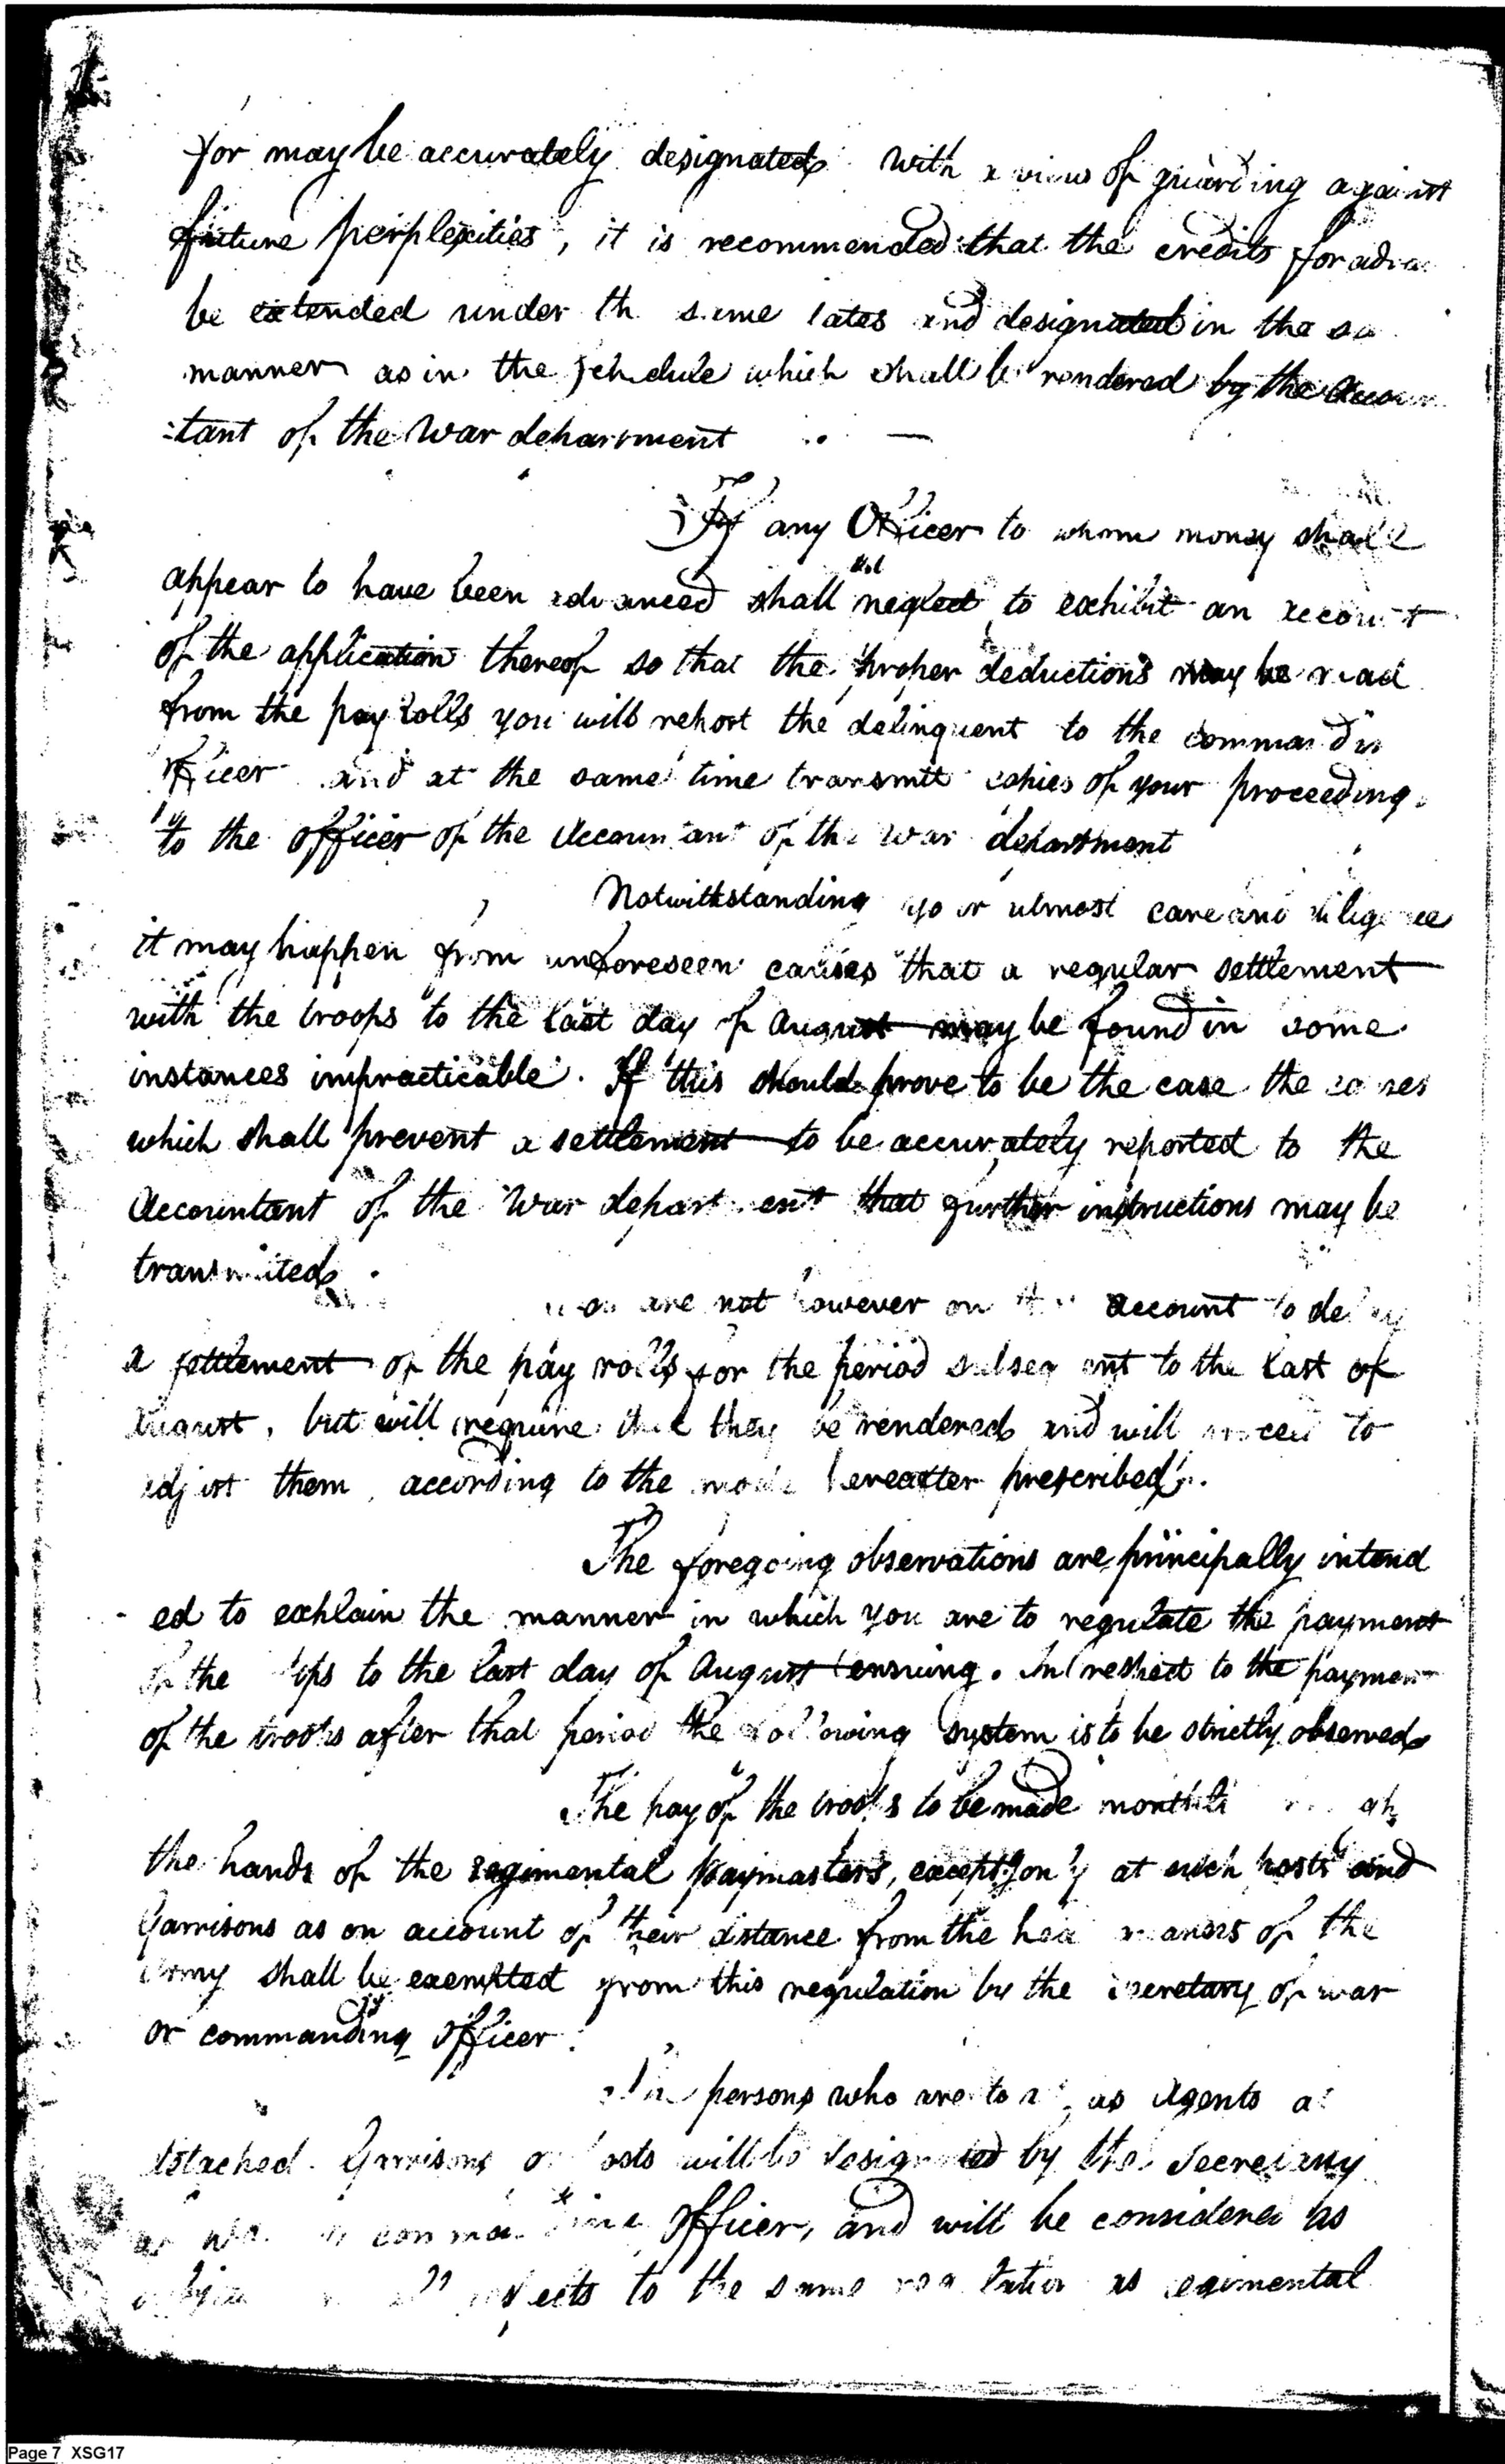 for may be accurately designated with a view of guarding against
future perplexities, it is recommended that the credits for
be extended under the same dates and designated in the
manner as in the schedule which shall be rendered by the Accoun
:tant of the War department
If any Officer to whom money shall
appear to have been advanced shall neglect to exhibit an account
of the application thereof so that the proper deductions may be mad
from the pay rolls you will report the delinquent to the commandin
officer and at the same time transmitt copies of your proceeding
to the officer of the Accountant of the War department
Notwithstanding your utmost care and diligence
it may happen from unforeseen causes that a regular settlement
with the troops to the last day of August may be found in some
instances impracticable. If this should prove to be the case the causes
which shall prevent a settlement to be accurately reported to the
Accountant of the War department that further instructions may be
transmited.
You are not however on this account to delay
a settlement of the pay rolls for the period subsequent to the last of
August, but will require that they be rendered and will proceed to
adjust them according to the mode hereafter prescribed.
The foregoing observations are principally intend
- ed to explain the manner in which you are to regulate the payment
of the troops to the last day of August ensuing. In respect to the paymen
of the troops after that period the following system is to be strictly observed
The pay of the troops to be made monthly through
the hands of the regimental paymasters, except only at such posts and
Garrisons as on account of their distance from the head quarters of the
Army shall be exempted from this regulation by the secretary of war
or commanding officer.
The persons who are to act as Agents at
detached Garrisons or posts will be designated by the Secretary
or commanding Officer, and will be considered as
respects to the same regulation as regimental
Page 7 XSG17